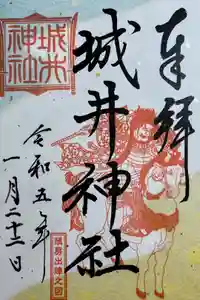 奉拝
城井神社
城井神社
令和五年
一月二十二日
鎮房出陣之図